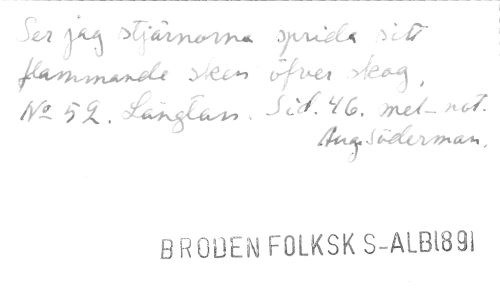 Ser jag stjärnorna sprida sitt
flammande sken öfver skog,
No 52. Längtan. Sid. 46. mel-not.
Aug. Söderman.
BRODEN FOLKSK S-ALB1891